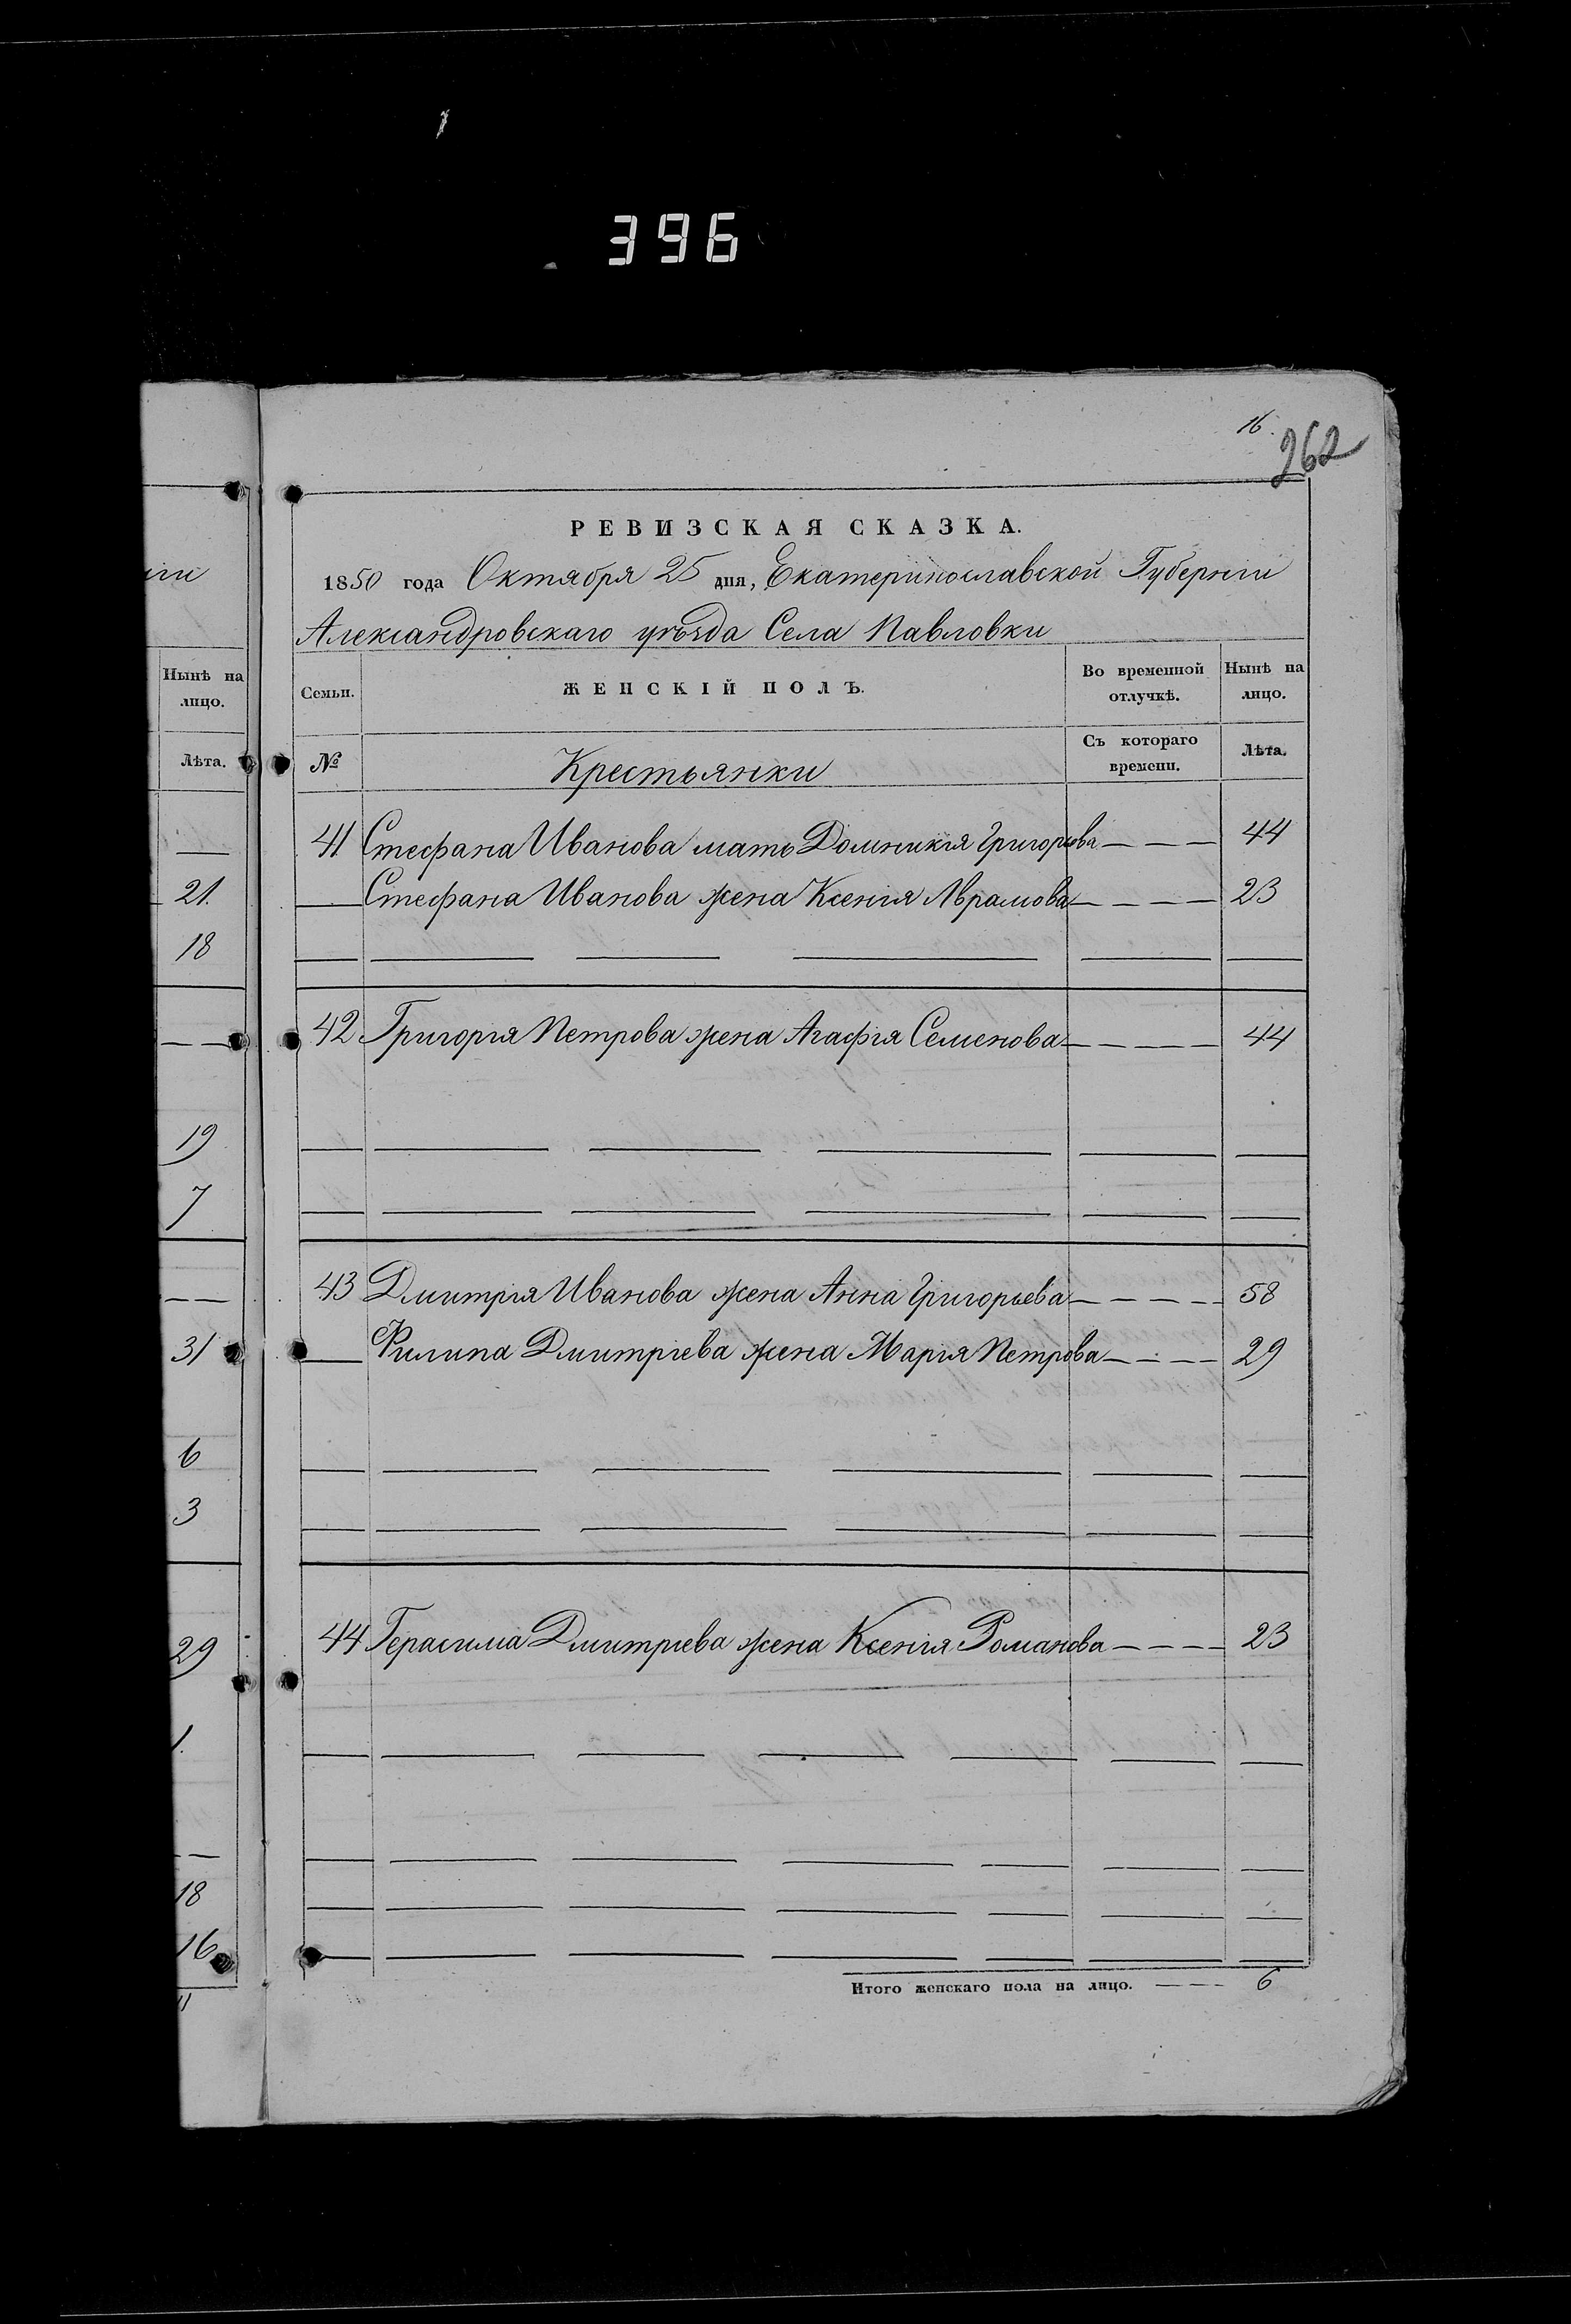 396
16.
262
РЕВИЗСКАЯ СКАЗКА.
1850 года Октября 25 дня, Екатеринославской Губернiи
Александровскаго уѣзда Села Павловки
Нынѣ на лицо.
Лѣта.
21.
18
19
7
31
6
3
29
1.
18
16
11
Семьи. ЖЕНСКІЙ ПОЛЪ. Во временной отлучкѣ. Нынѣ на лицо.
№ Крестьянки Съ котораго времени. Лѣта.
41 Стефана Иванова мать Домникiя Григорьева — — — 44
Стефана Иванова жена Ксенiя Аврамова — — — — 23
42 Григорiя Петрова жена Агафiя Семенова — — — — 44
43 Дмитрiя Иванова жена Анна Григорьева — — — — 58
Филипа Дмитрiева жена Марiя Петрова — — — — 29
44 Герасима Дмитрiева жена Ксенiя Романова — — — — 23
Итого женскаго пола на лицо. — — — 6